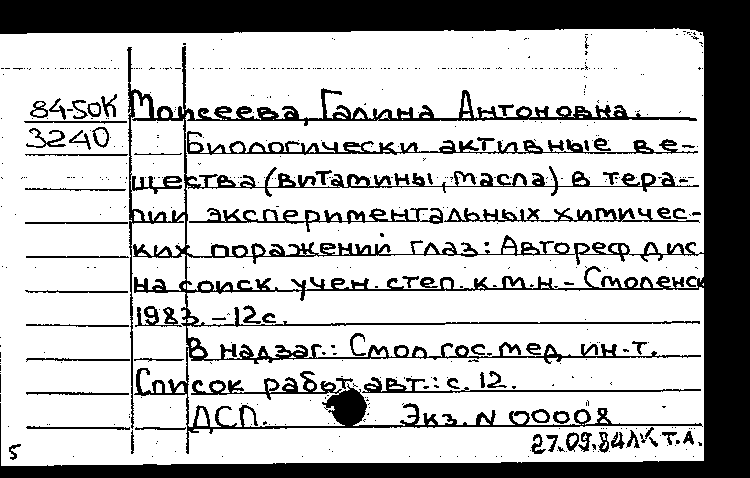 84-50К Моисеева, Галина Антоновна.
3240 Биологически активные ве-
щества (витамины, масла) в тера-
пии экспериментальных химичес-
ких поражений глаз: Автореф дис
на соиск. учен. степ. к.м.н. - Смоленск
1983. - 12с.
В надзаг.: Смол. гос. мед. ин-т.
Список работ авт.: с. 12.
ДСП. Экз. N 00008
27.09.84 ЛК Т.А.
5